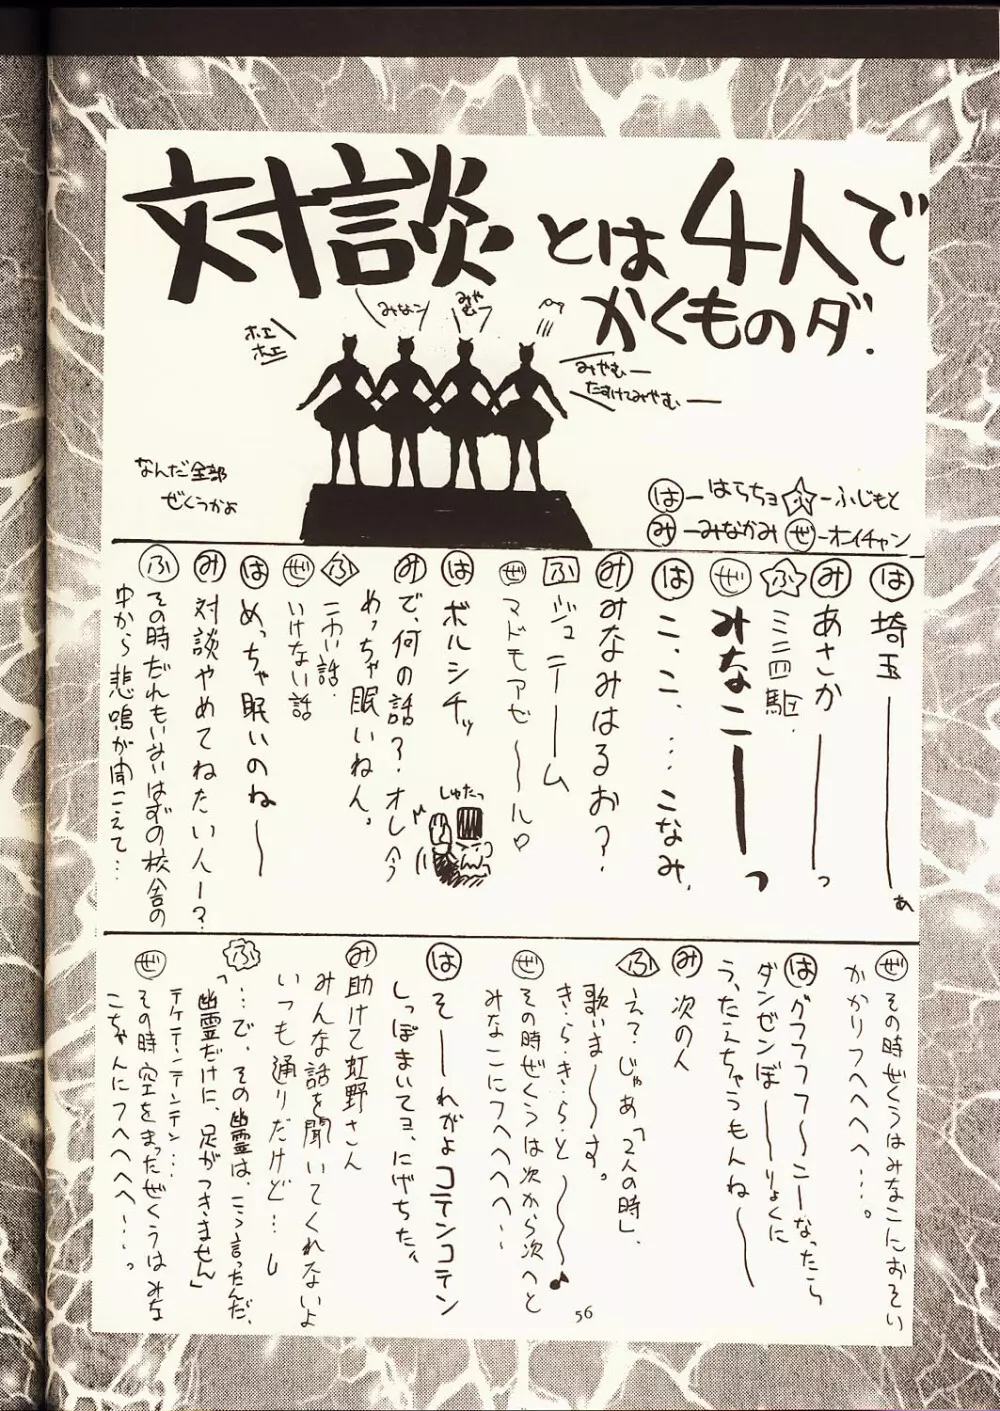 対談とは4人で
かくものダ.
みなン
みやむっ
ホエ
ホエ
みやむー
たすけてみやむー
なんだ全部
ぜくうかよ
は―はらちョ ふ―ふじもと
み―みなかみ ぜ―オイチャン
は 埼玉―――ぁ
み あさか―――っ
ふ ミニ四駆.
ぜ みなこ―――っ
は こ、こ、…こなみ.
み みなみはるお?
ふ ジュニーーム
ぜ マドモアゼ〜〜ル♡
は ボルシチッ
み で、何の話?オレ今
めっちゃ眠いねん。
ふ こわい話.
ぜ いけない話
は めっちゃ眠いのね〜
み 対談やめてねたい人ー?
ふ その時だれもいないはずの校舎の
中から悲鳴が聞こえて…
しゅたっ
ぜ その時ぜくうはみなこにおそい
かかりフヘヘヘヘ…。
は グフフフフ〜こーなったら
ダンゼンぼ――りょくに
うったえちゃうもんね〜〜
み 次の人
ふ え?じゃあ「2人の時」、
歌いま〜〜す。
き・ら・き・ら・と〜〜〜♪
ぜ その時ぜくうは次から次へと
みなこにフヘヘヘヘヘ…
は そ――れがよコテンコテン
しっぽまいてョ、にげちゃった
み 助けて虹野さん
みんな話を聞いてくれないよ
いつも通りだけど…し
ふ 「…で、その幽霊は、こう言ったんだ、
幽霊だけに、足がつきません」
テケテンテンテン…
ぜ その時空をまったぜくうはみな
こちゃんにフヘヘヘヘ…。
56